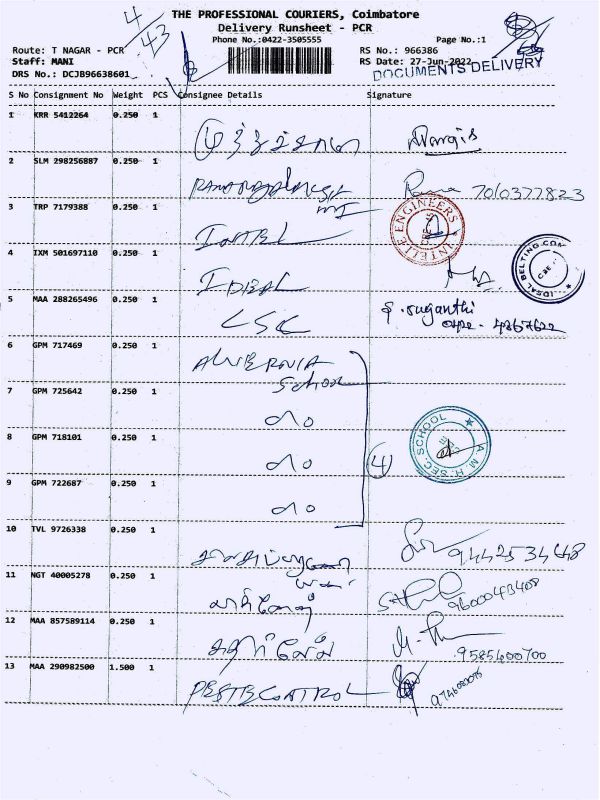 4/43
THE PROFESSIONAL COURIERS, Coimbatore
Delivery Runsheet - PCR
Phone No.:0422-3505555
Page No.:1
Route: T NAGAR - PCR
RS No.: 966386
Staff: MANI
RS Date: 27-Jun-2022
DOCUMENTS DELIVERY
DRS No.: DCJB96638601
S No Consignment No Weight PCS Consignee Details Signature
1 KRR 5412264 0.250 1
2 SLM 298256887 0.250 1 7010377823
3 TRP 7179388 0.250 1 INTEL INTELLE ENGINEERS CBE
4 IXM 501697110 0.250 1 IDEAL IDEAL BELTING CBE
5 MAA 288265496 0.250 1 LSC S. Suganthi
6 GPM 717469 0.250 1 ALVERNIA School
7 GPM 725642 0.250 1
8 GPM 718101 0.250 1 (4) A.M.H.SEC.SCHOOL
9 GPM 722687 0.250 1
10 TVL 9726338 0.250 1 9442534448
11 NGT 40005278 0.250 1 9600043408
12 MAA 857589114 0.250 1 கதிர்வேல் 9585600700
13 MAA 290982500 1.500 1 PESTECONTROL